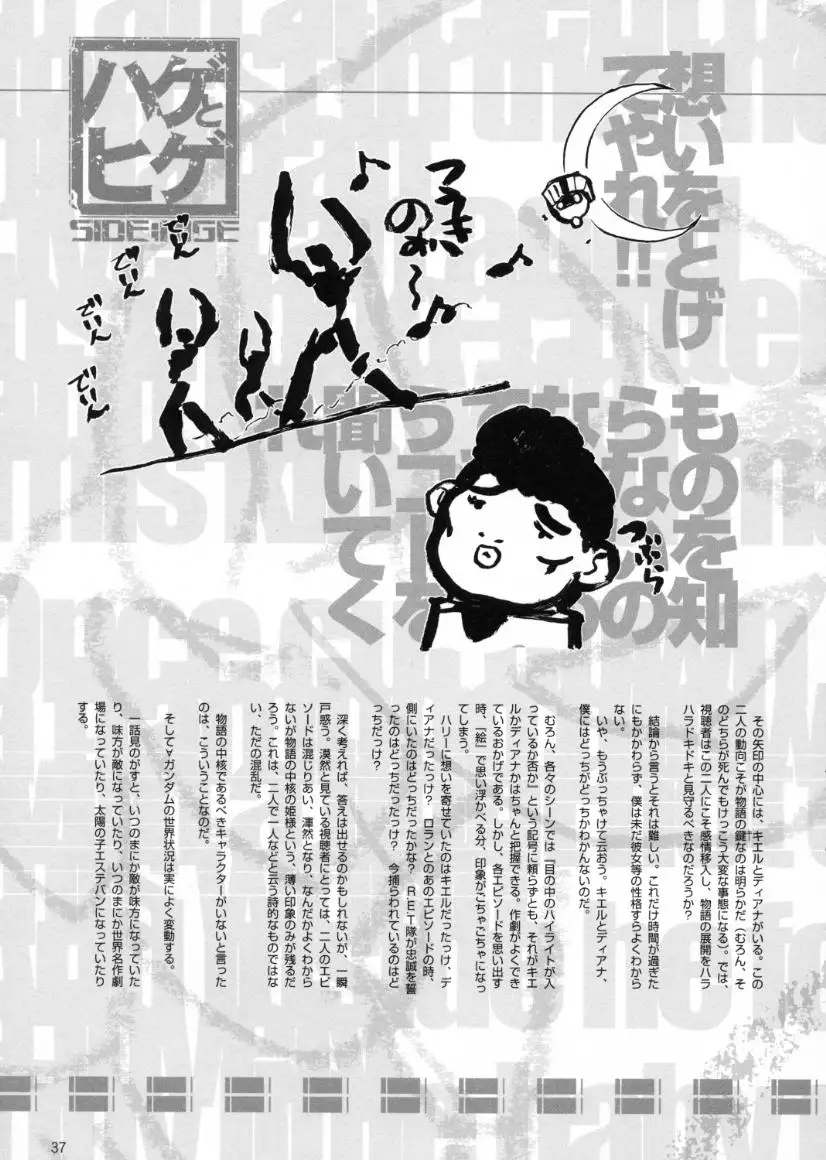 ハゲと
ヒゲ
想いをとげ
てやれ!!
つきのわ〜
でいん
でいん
でいん
でいん
ものを知
らな
の
聞いてく
れ
つぶら
その矢印の中心には、キエルとディアナがいる。この
二人の動向こそが物語の鍵なのは明らかだ(むろん、そ
のどちらが死んでもけっこう大変な事態になる)。では、
視聴者はこの二人にこそ感情移入し、物語の展開をハラ
ハラドキドキと見守るべきなのだろうか?
結論から言うとそれは難しい。これだけ時間が過ぎた
にもかかわらず、僕は未だ彼女等の性格すらよくわから
ない。
いや、もうぶっちゃけて云おう。キエルとディアナ、
僕にはどっちがどっちかわかんないのだ。
むろん、各々のシーンでは『目の中のハイライトが入
っているか否か』という記号に頼らずとも、それがキエ
ルかディアナかはちゃんと把握できる。作劇がよくでき
ているおかげである。しかし、各エピソードを思い出す
時、「絵」で思い浮かべる分、印象がごちゃごちゃになっ
てしまう。
ハリーに想いを寄せていたのはキエルだったっけ、デ
ィアナだったっけ? ロランとのあのエピソードの時、
側にいたのはどっちだったかな? RET隊が忠誠を誓
ったのはどっちだったっけ? 今捕らわれているのはど
っちだっけ?
深く考えれば、答えは出せるのかもしれないが、一瞬
戸惑う。漠然と見ている視聴者にとっては、二人のエピ
ソードは混じりあい、渾然となり、なんだかよくわから
ないが物語の中核の姫様という、薄い印象のみが残るだ
ろう。これは、二人で一人などと云う詩的なものではな
い、ただの混乱だ。
物語の中核であるべきキャラクターがいないと言った
のは、こういうことなのだ。
そして∀ガンダムの世界状況は実によく変動する。
一話見のがすと、いつのまにか敵が味方になっていた
り、味方が敵になっていたり、いつのまにか世界名作劇
場になっていたり、太陽の子エステバンになっていたり
する。
37